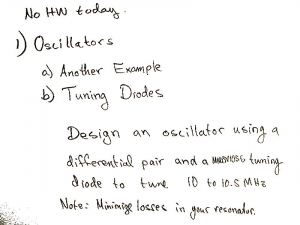 No HW today.
1) Oscillators
a) Another Example
b) Tuning Diodes
Design an oscillator using a
differential pair and a tuning
diode to tune 10 to 10.5 MHz
Note: Minimize losses in your resonator.